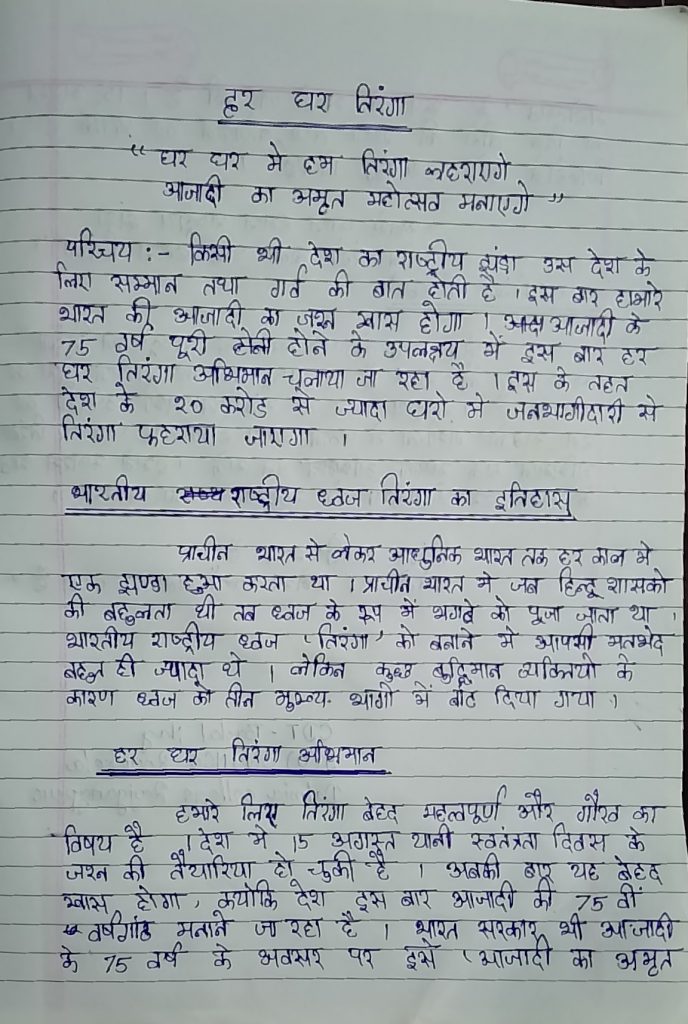 हर घर तिरंगा
“ घर घर मे हम तिरंगा लहराएगे
आजादी का अमृत महोत्सव मनाएगे ”
परिचय :- किसी भी देश का राष्ट्रीय झंडा उस देश के
लिए सम्मान तथा गर्व की बात होती है । इस बार हामारे
भारत की आजादी का जश्न खास होगा । आजादी के
75 वर्ष पूरी होने के उपलक्षय में इस बार हर
घर तिरंगा अभिमान चलाया जा रहा है । इस के तहत
देश के २० करोड से ज्यादा घरो मे जनभागीदारी से
तिरंगा फहराया जाएगा ।
भारतीय राष्ट्रीय ध्वज तिरंगा का इतिहास
प्राचीन भारत से लेकर आधुनिक भारत तक हर काल मे
एक झण्डा हुआ करता था । प्राचीन भारत मे जब हिन्दू शासको
की बहुलता थी तब ध्वज के रूप में भगवे को पूजा जाता था ।
भारतीय राष्ट्रीय ध्वज 'तिरंगा' को बनाने मे आपसी मतभेद
बहुत ही ज्यादा थे । लेकिन कुछ बुद्धिमान व्यक्तियो के
कारण ध्वज को तीन मुख्य भागो में बाँट दिया गया ।
हर घर तिरंगा अभिमान
हमारे लिए तिरंगा बेहद महत्वपूर्ण और गौरव का
विषय है । देश मे 15 अगस्त यानी स्वतंत्रता दिवस के
जश्न की तैयारिया हो चुकी है । अबकी बार यह बेहद
खास होगा, क्योकि देश इस बार आजादी की 75 वीं
वर्षगांठ मनाने जा रहा है । भारत सरकार भी आजादी
के 75 वर्ष के अवसर पर इसे 'आजादी का अमृत